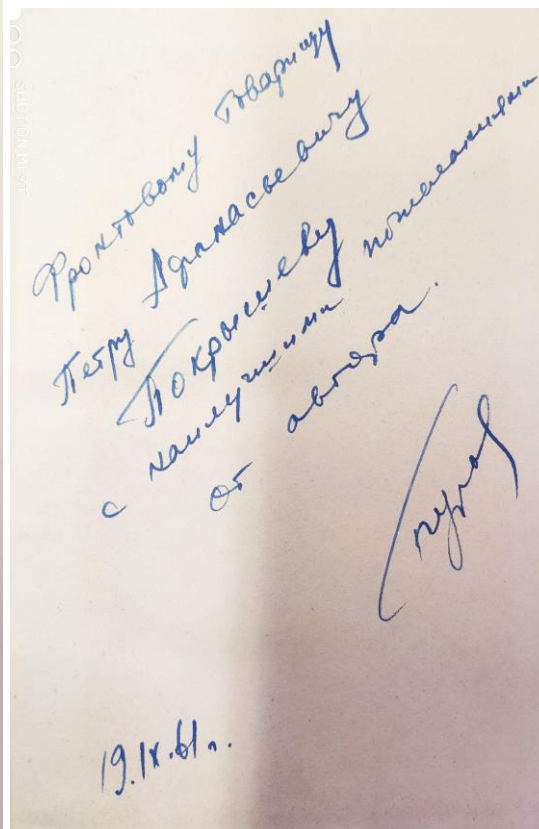 Фронтовому Товарищу
Петру Афанасьевичу
Покрышеву
с наилучшими пожеланиями
от автора.
19.IX.61 г.